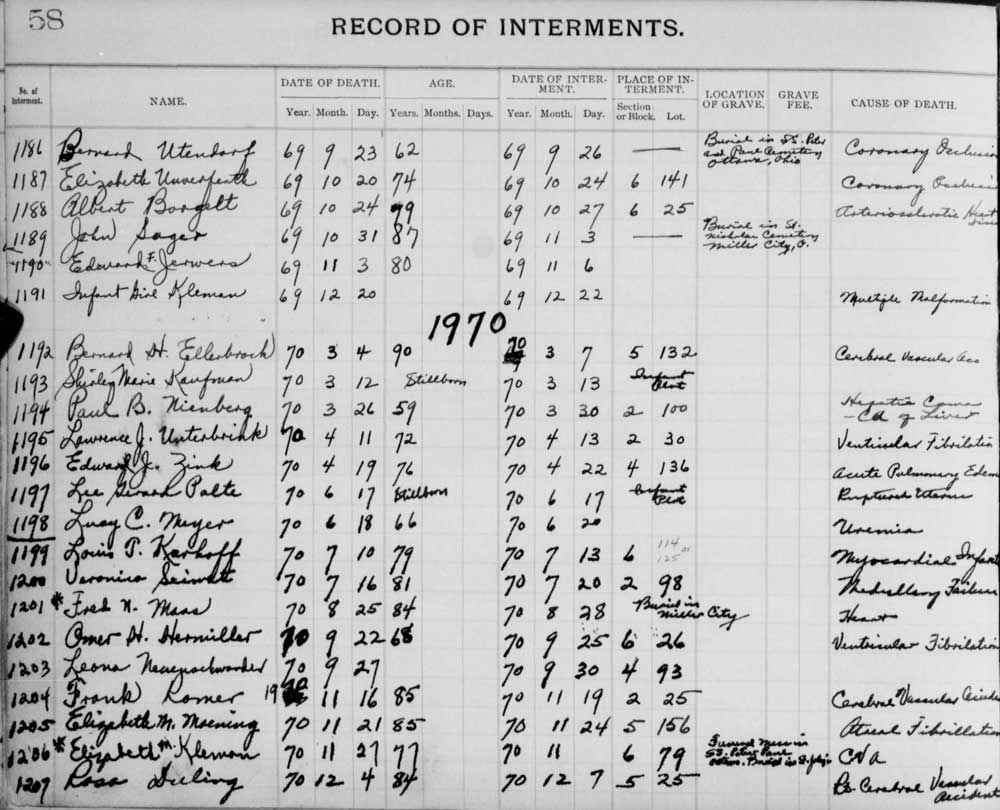 58
RECORD OF INTERMENTS.
No. of Interment. NAME. DATE OF DEATH. Year. Month. Day. AGE. Years. Months. Days. DATE OF INTER-MENT. Year. Month. Day. PLACE OF IN-TERMENT. Section or Block. Lot. LOCATION OF GRAVE. GRAVE FEE. CAUSE OF DEATH.
1186 Bernard Utendorf 69 9 23 62 69 9 26 — Burial in SS. Peter and Paul Cemetery Ottawa, Ohio Coronary Occlusion
1187 Elizabeth Unverferth 69 10 20 74 69 10 24 6 141 Coronary Occlusion
1188 Albert Borgelt 69 10 24 79 69 10 27 6 25 Arteriosclerotic Heart
1189 John Sager 69 10 31 87 69 11 3 — Burial in St. Nicholas Cemetery Miller City, O.
1190 Edward F. Jerwers 69 11 3 80 69 11 6
1191 Infant Girl Kleman 69 12 20 69 12 22 Multiple Malformation
1970
1192 Bernard H. Ellerbrock 70 3 4 90 70 3 7 5 132 Cerebral Vascular Acc
1193 Shirley Marie Kaufman 70 3 12 Stillborn 70 3 13 Infant Plot
1194 Paul B. Nienberg 70 3 26 59 70 3 30 2 100 Hepatic Coma — CA of Liver
1195 Lawrence J. Unterbrink 70 4 11 72 70 4 13 2 30 Ventricular Fibrilation
1196 Edward J. Zink 70 4 19 76 70 4 22 4 136 Acute Pulmonary Edem
1197 Lee Gerard Palte 70 6 17 Stillborn 70 6 17 Infant Plot Ruptured Uterus
1198 Lucy C. Meyer 70 6 18 66 70 6 20 Uremia
1199 Louis T. Karhoff 70 7 10 79 70 7 13 6 114 or 125 Myocardial Infarct
1200 Veronica 70 7 16 81 70 7 20 2 98 Medullary Failure
1201 * Fred N. Maas 70 8 25 84 70 8 28 Burial in Miller City Heart
1202 Omer H. Hermiller 70 9 22 68 70 9 25 6 26 Ventricular Fibrilation
1203 Leona Neuenschwander 70 9 27 70 9 30 4 93
1204 Frank Romer 19 70 11 16 85 70 11 19 2 25 Cerebral Vascular Accident
1205 Elizabeth M. Moening 70 11 21 85 70 11 24 5 156 Atreal Fibrillation
1206 * Elizabeth M. Kleman 70 11 27 77 70 11 6 79 Funeral Mass in SS. Peter Paul Ottawa. Buried in CVA
1207 Rosa Duling 70 12 4 84 70 12 7 5 25 Cerebral Vascular Accident